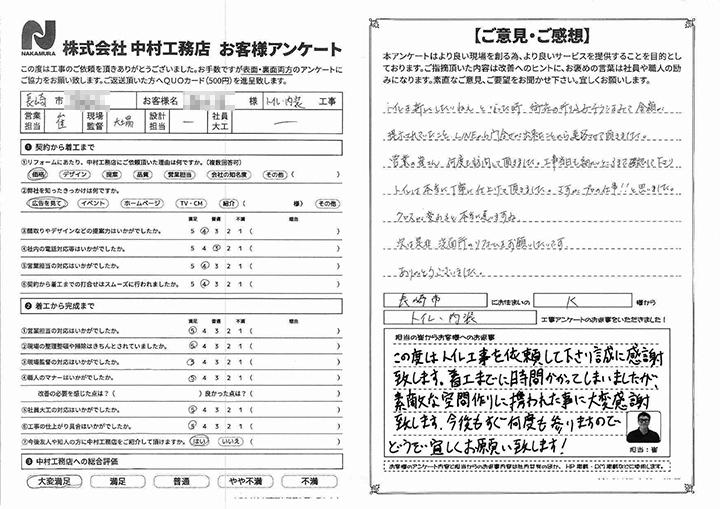 NAKAMURA
株式会社 中村工務店 お客様アンケート
この度は工事のご依頼を頂きありがとうございました。お手数ですが表面・裏面両方のアンケートに
ご協力をお願い致します。ご返送頂いた方へQUOカード(500円)を進呈致します。
長崎 市 お客様名 様 トイレ・内装 工事
営業担当 崔 現場監督 大場 設計担当 ー 社員大工 ー
❶ 契約から着工まで
①リフォームにあたり、中村工務店にご依頼頂いた理由は何ですか。(複数回答可)
価格 デザイン 提案 品質 営業担当 会社の知名度 その他( )
②弊社を知ったきっかけは何ですか。
広告を見て イベント ホームページ TV・CM 紹介( 様) その他
満足 普通 不満 理由
③間取りやデザインなどの提案力はいかがでしたか。 5 4 3 2 1 ( )
④社内の電話対応等はいかがでしたか。 5 4 3 2 1 ( )
⑤営業担当の対応はいかがでしたか。 5 4 3 2 1 ( )
⑥契約から着工までの打合せはスムーズに行われましたか。 5 4 3 2 1 ( )
❷ 着工から完成まで
満足 普通 不満 理由
①営業担当の対応はいかがでしたか。 5 4 3 2 1 ( )
②現場の整理整頓や掃除はきちんとされていましたか。 5 4 3 2 1 ( )
③現場監督の対応はいかがでしたか。 5 4 3 2 1 ( )
④職人のマナーはいかがでしたか。 5 4 3 2 1 ( )
改善の必要を感じた点は?( )良かった点は?( )
⑤社員大工の対応はいかがでしたか。 5 4 3 2 1 ( )
⑥工事の仕上がり具合はいかがでしたか。 5 4 3 2 1 ( )
⑦今後友人や知人の方に中村工務店をご紹介して頂けますか。 はい いいえ ( )
❸ 中村工務店への総合評価
大変満足 満足 普通 やや不満 不満
【ご意見・ご感想】
本アンケートはより良い現場を創る為、より良いサービスを提供することを目的とし
ております。ご指摘頂いた内容は改善へのヒントに、お褒めの言葉は社員や職人の励
みになります。素直なご意見、ご要望をお聞かせ下さい。宜しくお願いします。
トイレを新しくしたいねん と
提示されていたこと LINEから問合せが出来たことから
営業の崔さん 何度も訪問して頂きました。工事当日も
トイレは本当に丁寧に仕上げて頂きました。さすがプロの仕事!!と思いました。
クロスが変わると本当に
次は是非 洗面所のリフォームをお願いしたいです。
ありがとうございました。
長崎市 にお住まいの K 様から
トイレ・内装 工事アンケートのお返事をいただきました!
担当の崔からお客様へのお返事
この度はトイレ工事を依頼して下さり誠に感謝
致します。着工までに時間かかってしまいましたが、
素敵な空間作りに携われた事に大変感謝
致します。今後もすぐ何度も参りますので
どうぞ宜しくお願い致します!
担当:崔
お客様のアンケート内容と担当からのお返事内容は社内共有のほか、HP掲載・DM掲載などに使用します。